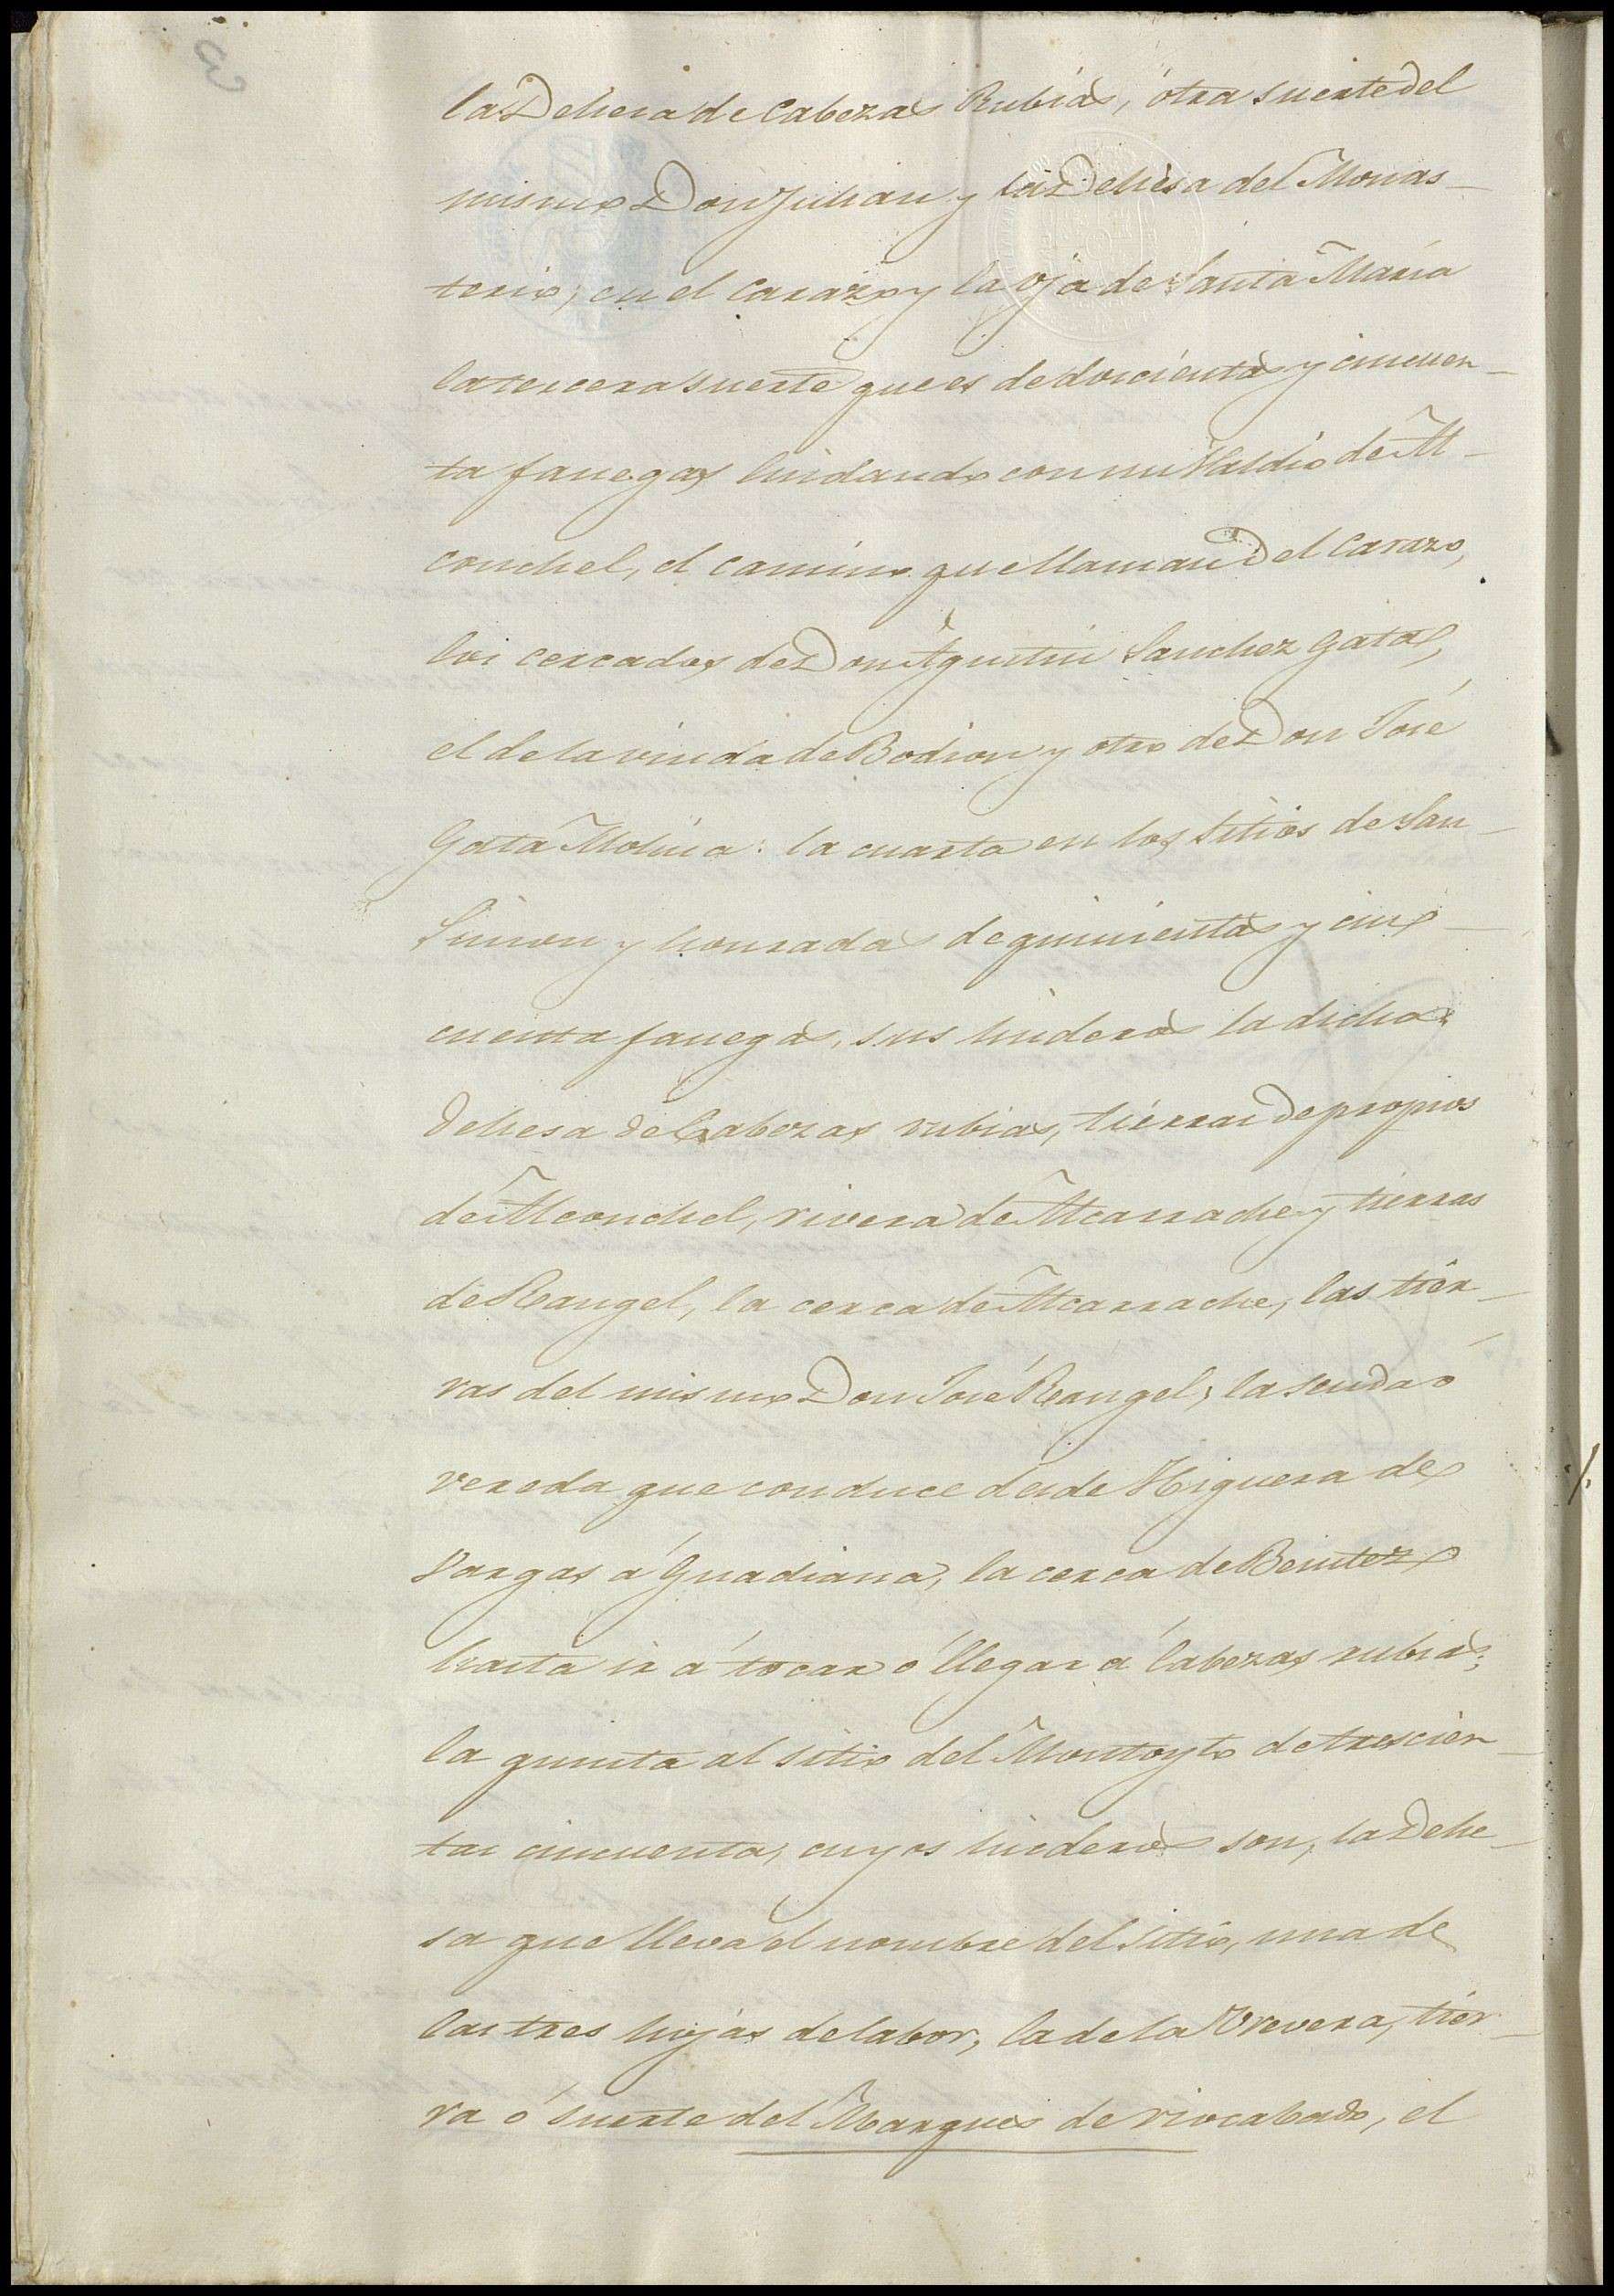 la Dehesa de Cabezas Rubias, ótra suerte del
mismo Don Julian y la Dehesa del Monas-
terio; en el Carazo y la oja de Santa María
la tercera suerte que es de doscientas y cincuen-
ta fanegas lindando con mi Valdio de Al-
conchel, el camino que llaman del Carazo,
los cercados de Don Agustin Sanchez Gata,
el de la viuda de Bodion y otro de Don José
Gata Molina: la cuarta en los sitios de San
Simon y honradas de quinientas y cin-
cuenta fanegas, sus linderos la dicha
dehesa de Cabezas rubias, tierras de propios
de Alconchel, rivera de Alcarrache y tierras
de Rangel, la cerca de Alcarrache, las tier-
ras del mismo Don José Rangel, la senda ó
vereda que conduce desde Higuera de
Vargas á Guadiana, la cerca de Benitez
hasta ir á tocar ó llegar á Cabezas rubias;
la quinta al sitio del Montoyto de trescien-
tas cincuenta, cuyos linderos son, la Dehe-
sa que lleva el nombre del sitio, una de
las tres hojas de labor, la de la Vrevera, tier-
ra ó suerte del Marques de riocabado, el